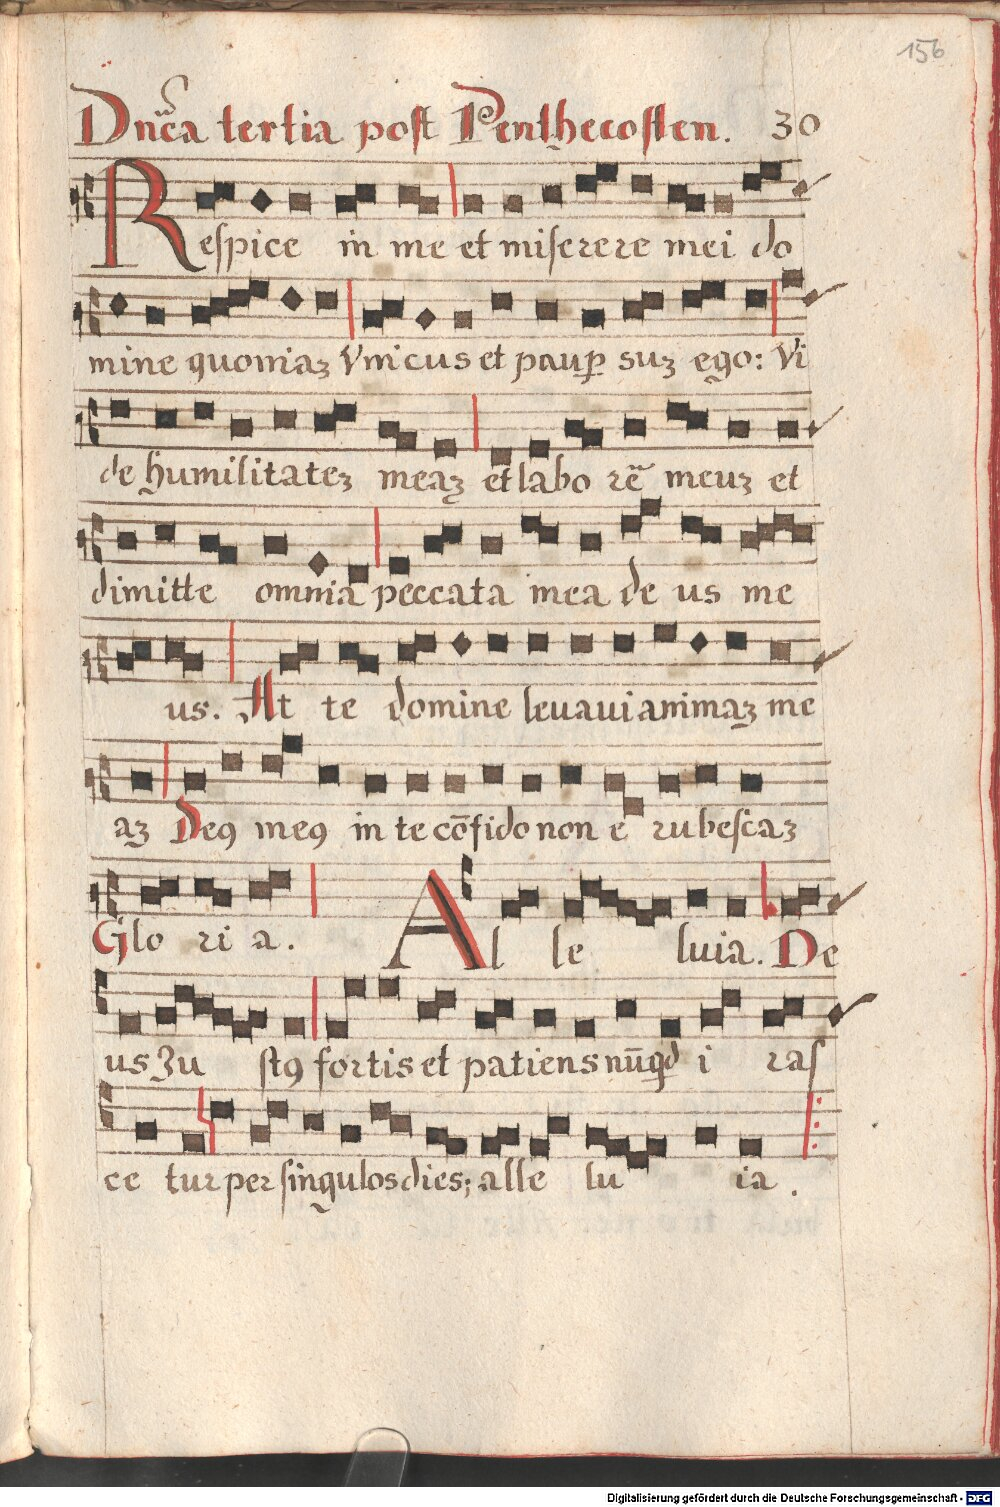 156
Dnīca tertia post Penthecosten. 30
Respice in me et miserere mei do
mine quoniaʒ Vnicus et paup̱ suʒ ego: Vi
de humilitateʒ meaʒ et labo rē meuʒ et
dimitte omnia peccata mea de us me
us. At te domine levavi animaʒ me
aʒ Deꝯ meꝯ in te cōfido non e rubescaʒ
Glo ri a. Al le luia. De
us Ju stꝯ fortis et patiens nūqd i ras
ce tur per singulos dies; alle lu ia.
Digitalisierung gefördert durch die Deutsche Forschungsgemeinschaft - DFG